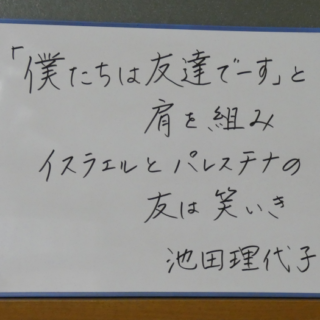 「僕たちは友達でーす」と
肩を組み
イスラエルとパレスチナの
友は笑いき
池田理代子